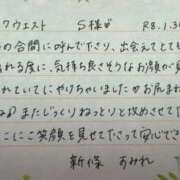 クウエスト S様 R8.1.30
の合間に呼んで下さり、出会えてとても
れる度に、気持ち良さそうなお顔が見
れていてにやけちゃいましたかお尻まれ
なまたじっくりねっとりと攻めさせて下
にこにこ笑顔を見せて下さって安心でき
新條 すみれ